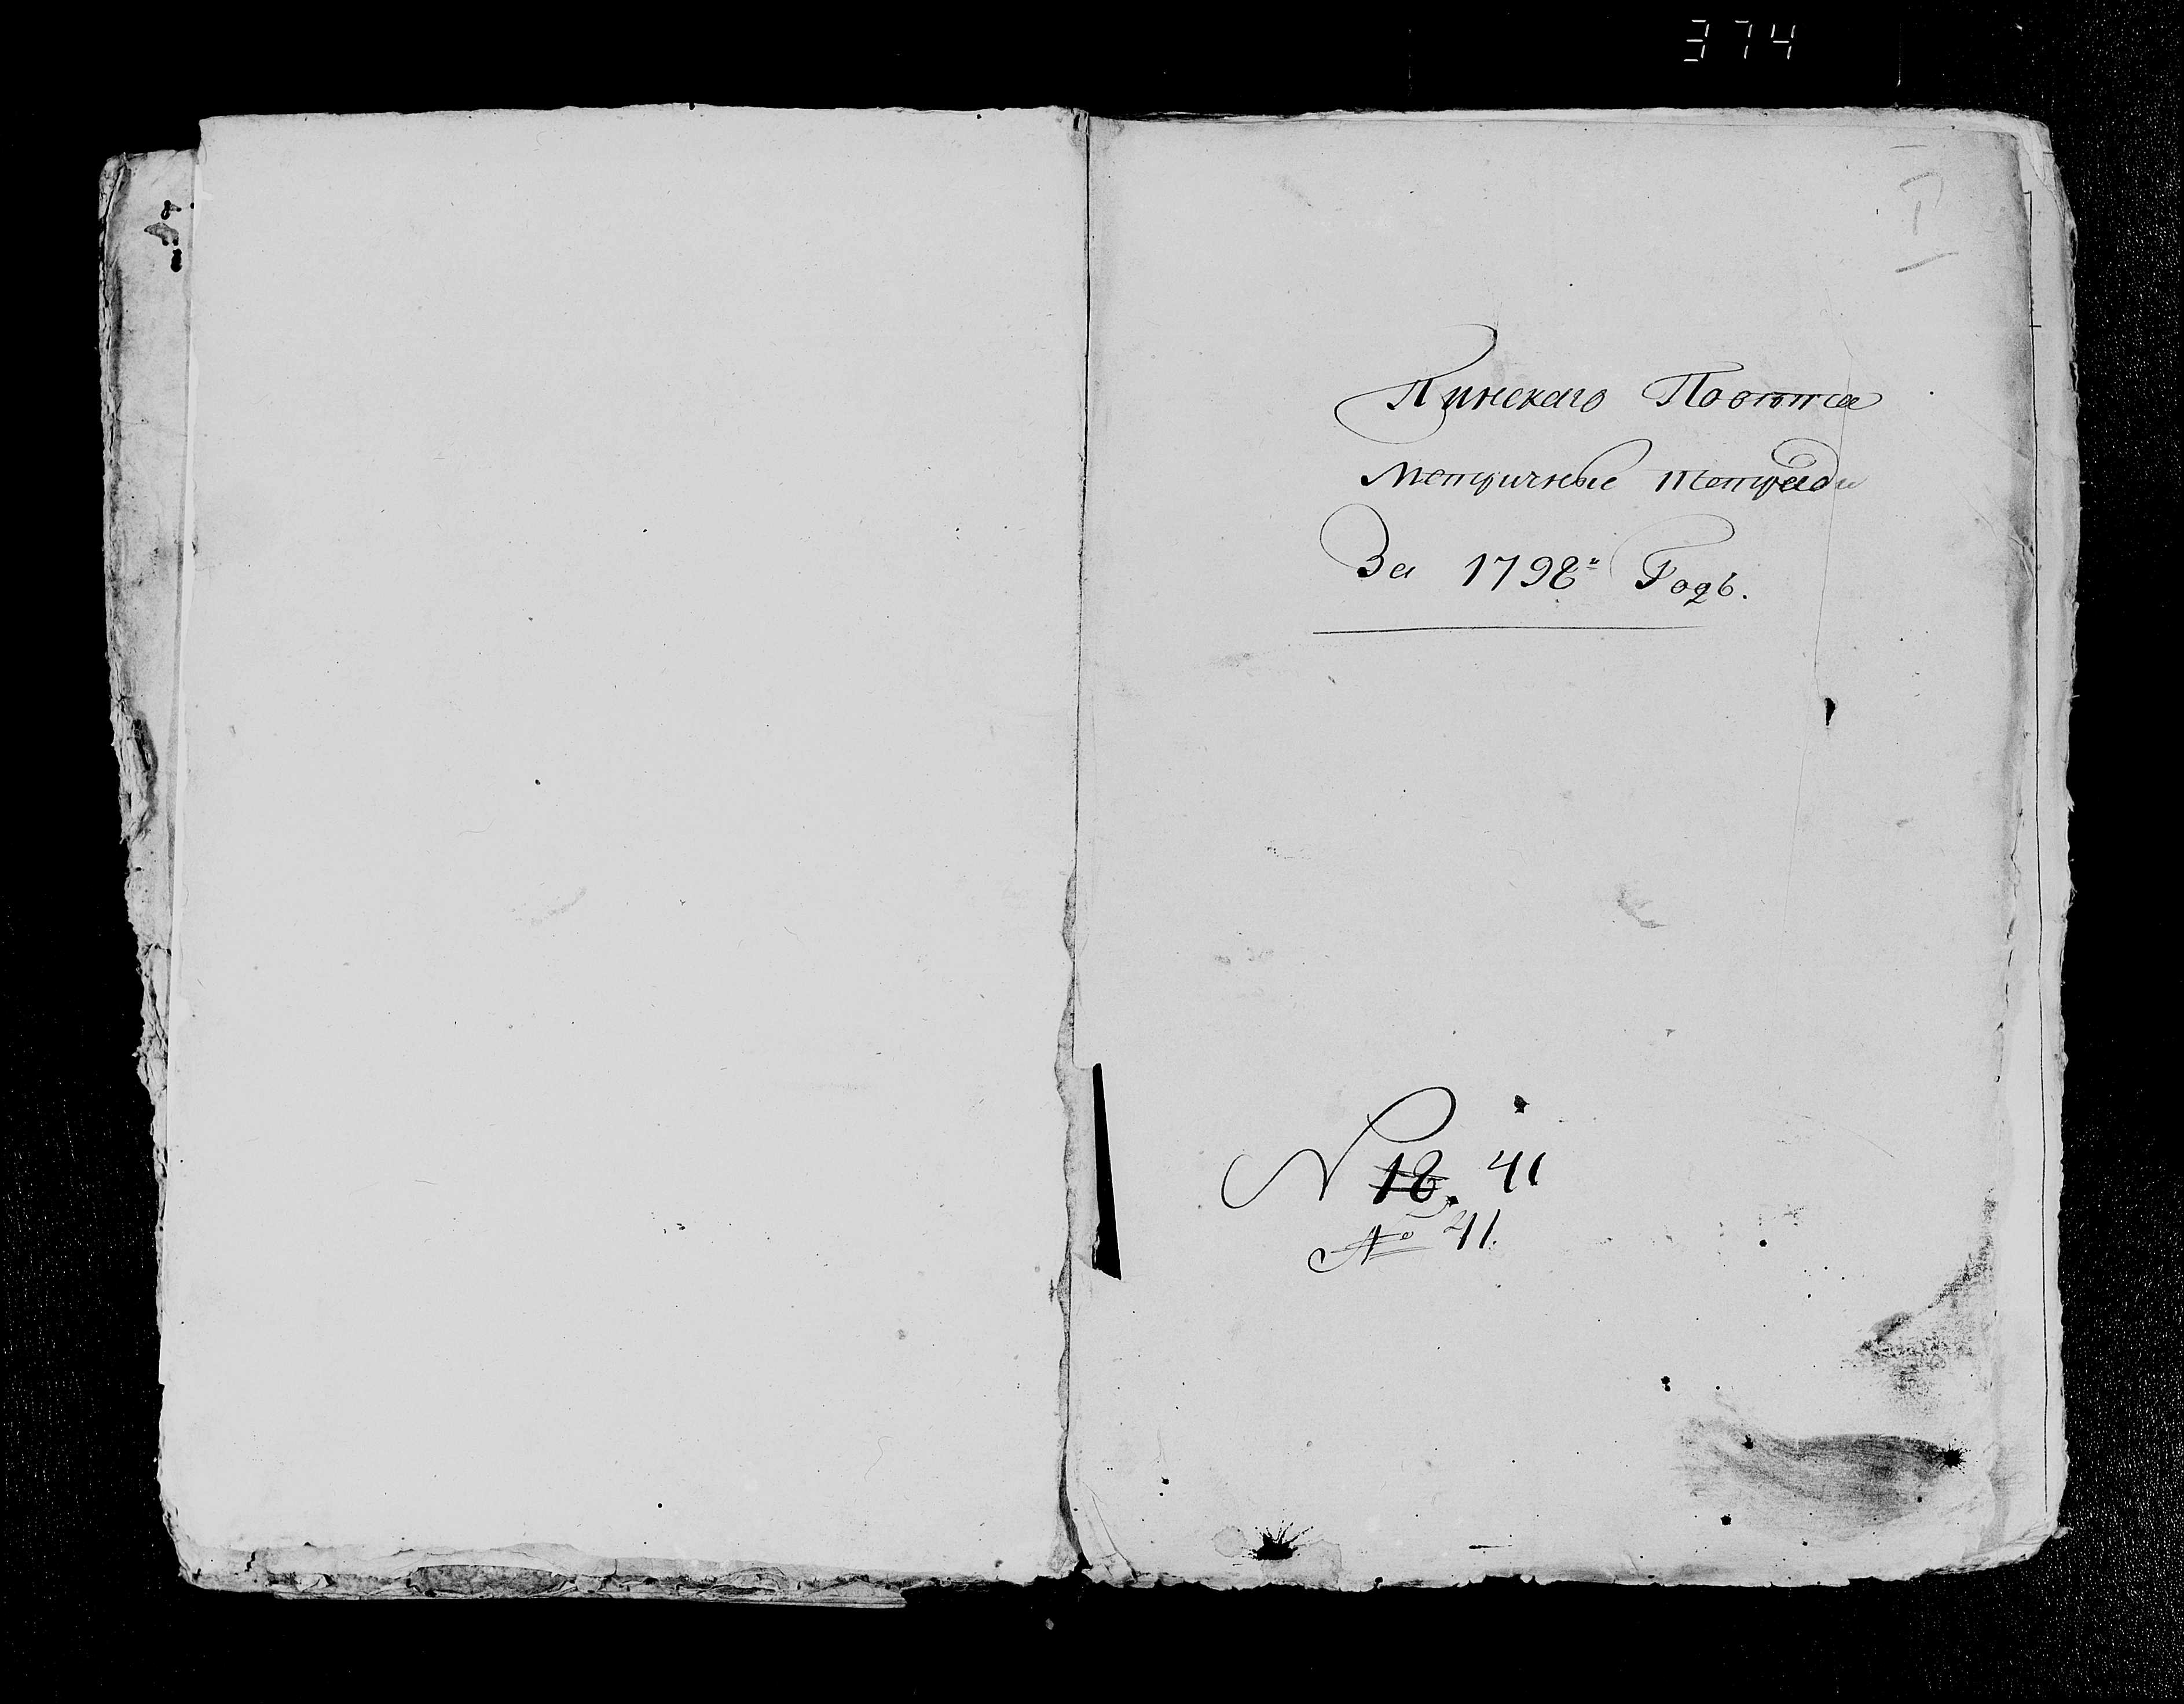 374
Пинскаго Повѣта
Метричные тетради
За 1798" Годъ.
N 18. 41
№ 41.